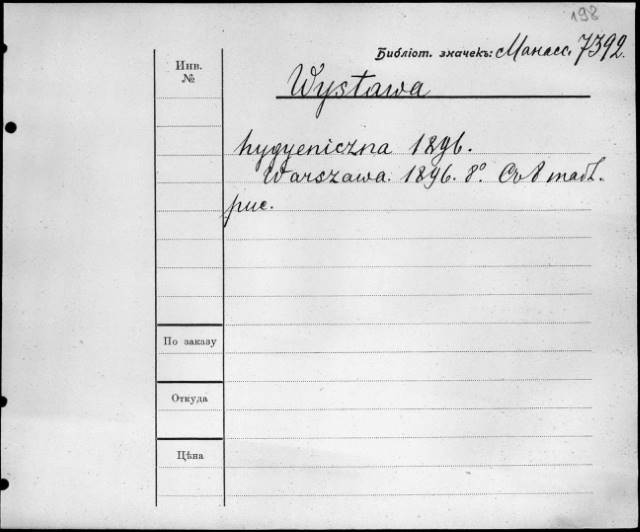 198
Библіот. значекъ: Манасс. 7392.
Инв.
№
Wystawa
hygyeniczna 1896.
Warszawa. 1896. 8°. Съ 8 табл.
рис.
По заказу
Откуда
Цѣна